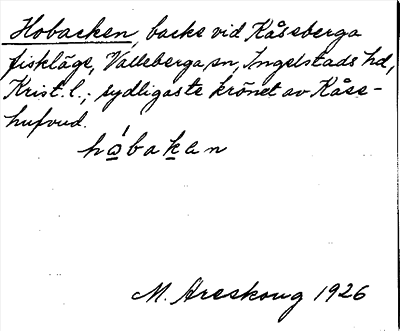 Hobacken, backe vid Kåseberga
fiskläge, Valleberga sn, Ingelstads hd,
Krist. l.; sydligaste krönet av Kåse-
hufvud.
hω̊́bakan
M. Areskoug 1926